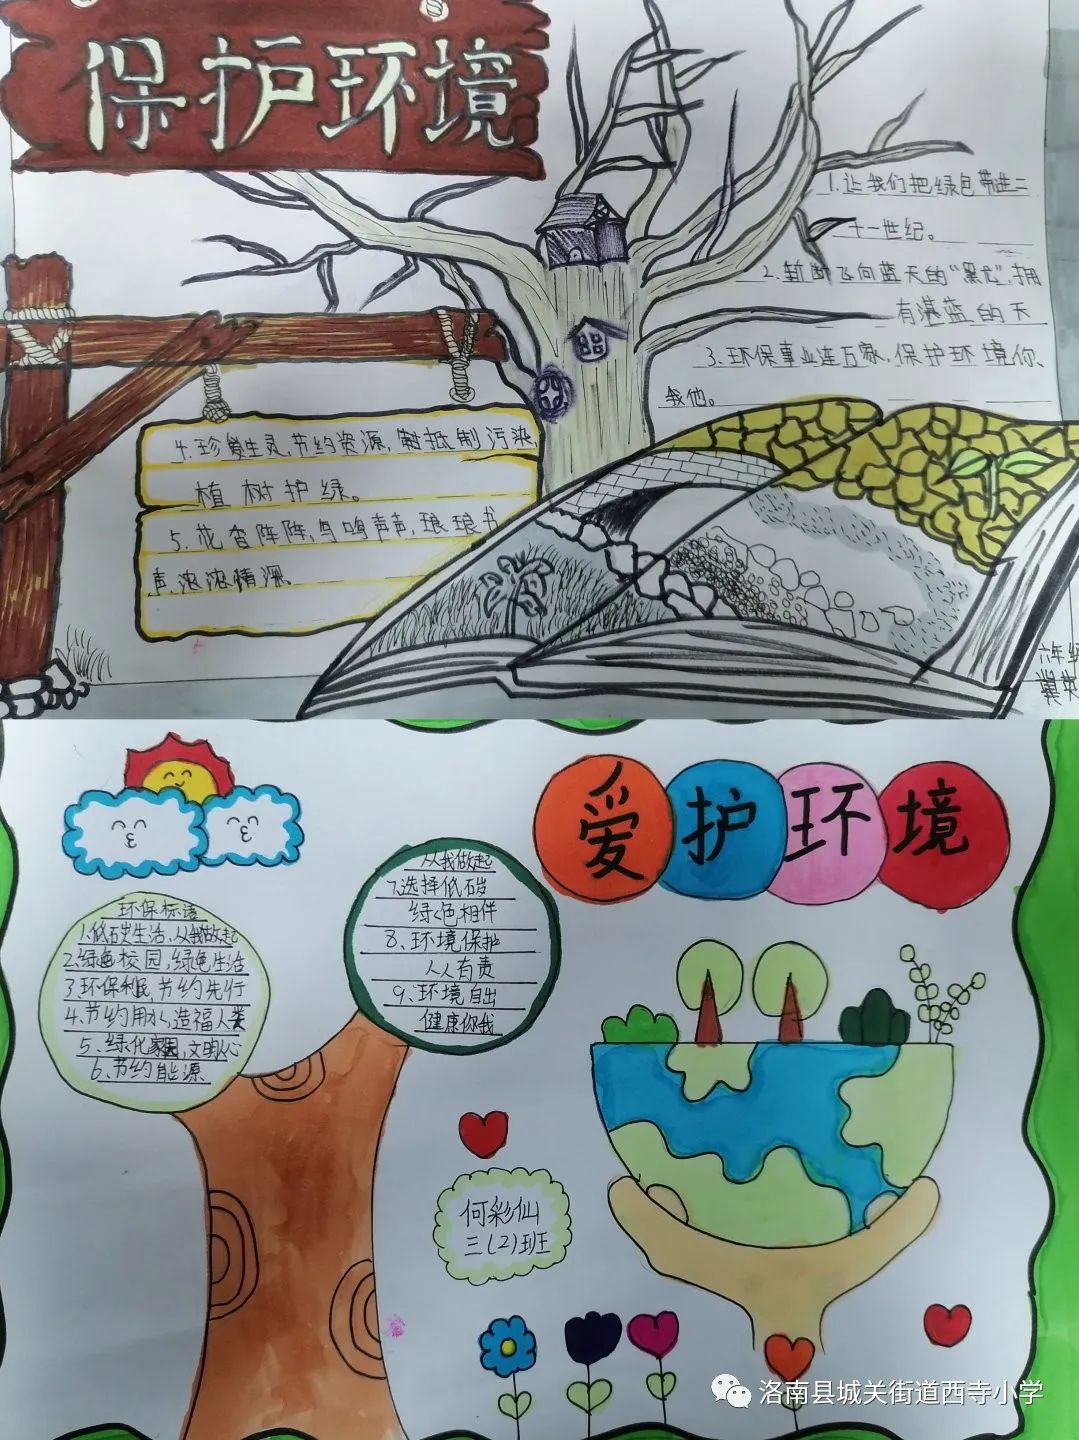 保护环境
1.让我们把绿色带进二
十一世纪。
2.斩断飞向蓝天的“黑龙”,拥
有湛蓝的天
3.环保事业连万家,保护环境你、
我他。
4.珍爱生灵,节约资源,抵制污染,
植树护绿。
5.花香阵阵,鸟鸣声声,琅琅书
声,浓浓情深、
六年级
爱护环境
环保标语
1.低碳生活,从我做起
2.绿色校园,绿色生活
3.环保利民,节约先行
4.节约用水,造福人类
5、绿化家园,文明心
6、节约能源
从我做起
7.选择低碳
绿色相伴
8、环境保护
人人有责
9、环境自出
健康你我
何彩仙
三(2)班
洛南县城关街道西寺小学